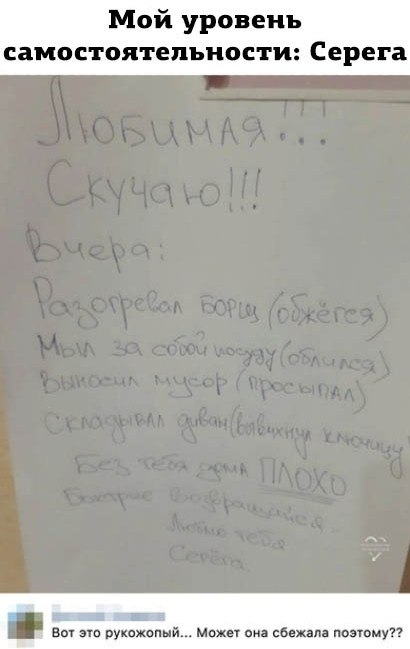 Мой уровень
самостоятельности: Серега
Любимая!!!
Скучаю!!!
Вчера:
Разогревал борщ (обжёгся)
Мыл за собой посуду (облился)
Выносил мусор (просыпал)
Складывал диван (вывихнул ключицу)
Без тебя дома ПЛОХО
Быстрее возвращайся.
Люблю тебя
Серёга.
Вот это рукожопый... Может она сбежала поэтому??